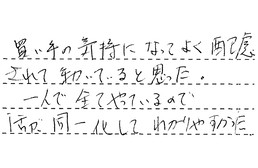 買い手の気持になってよく配慮
されて動いていると思った。
一人で全てやっているので
話が同一化して わかりやすかった